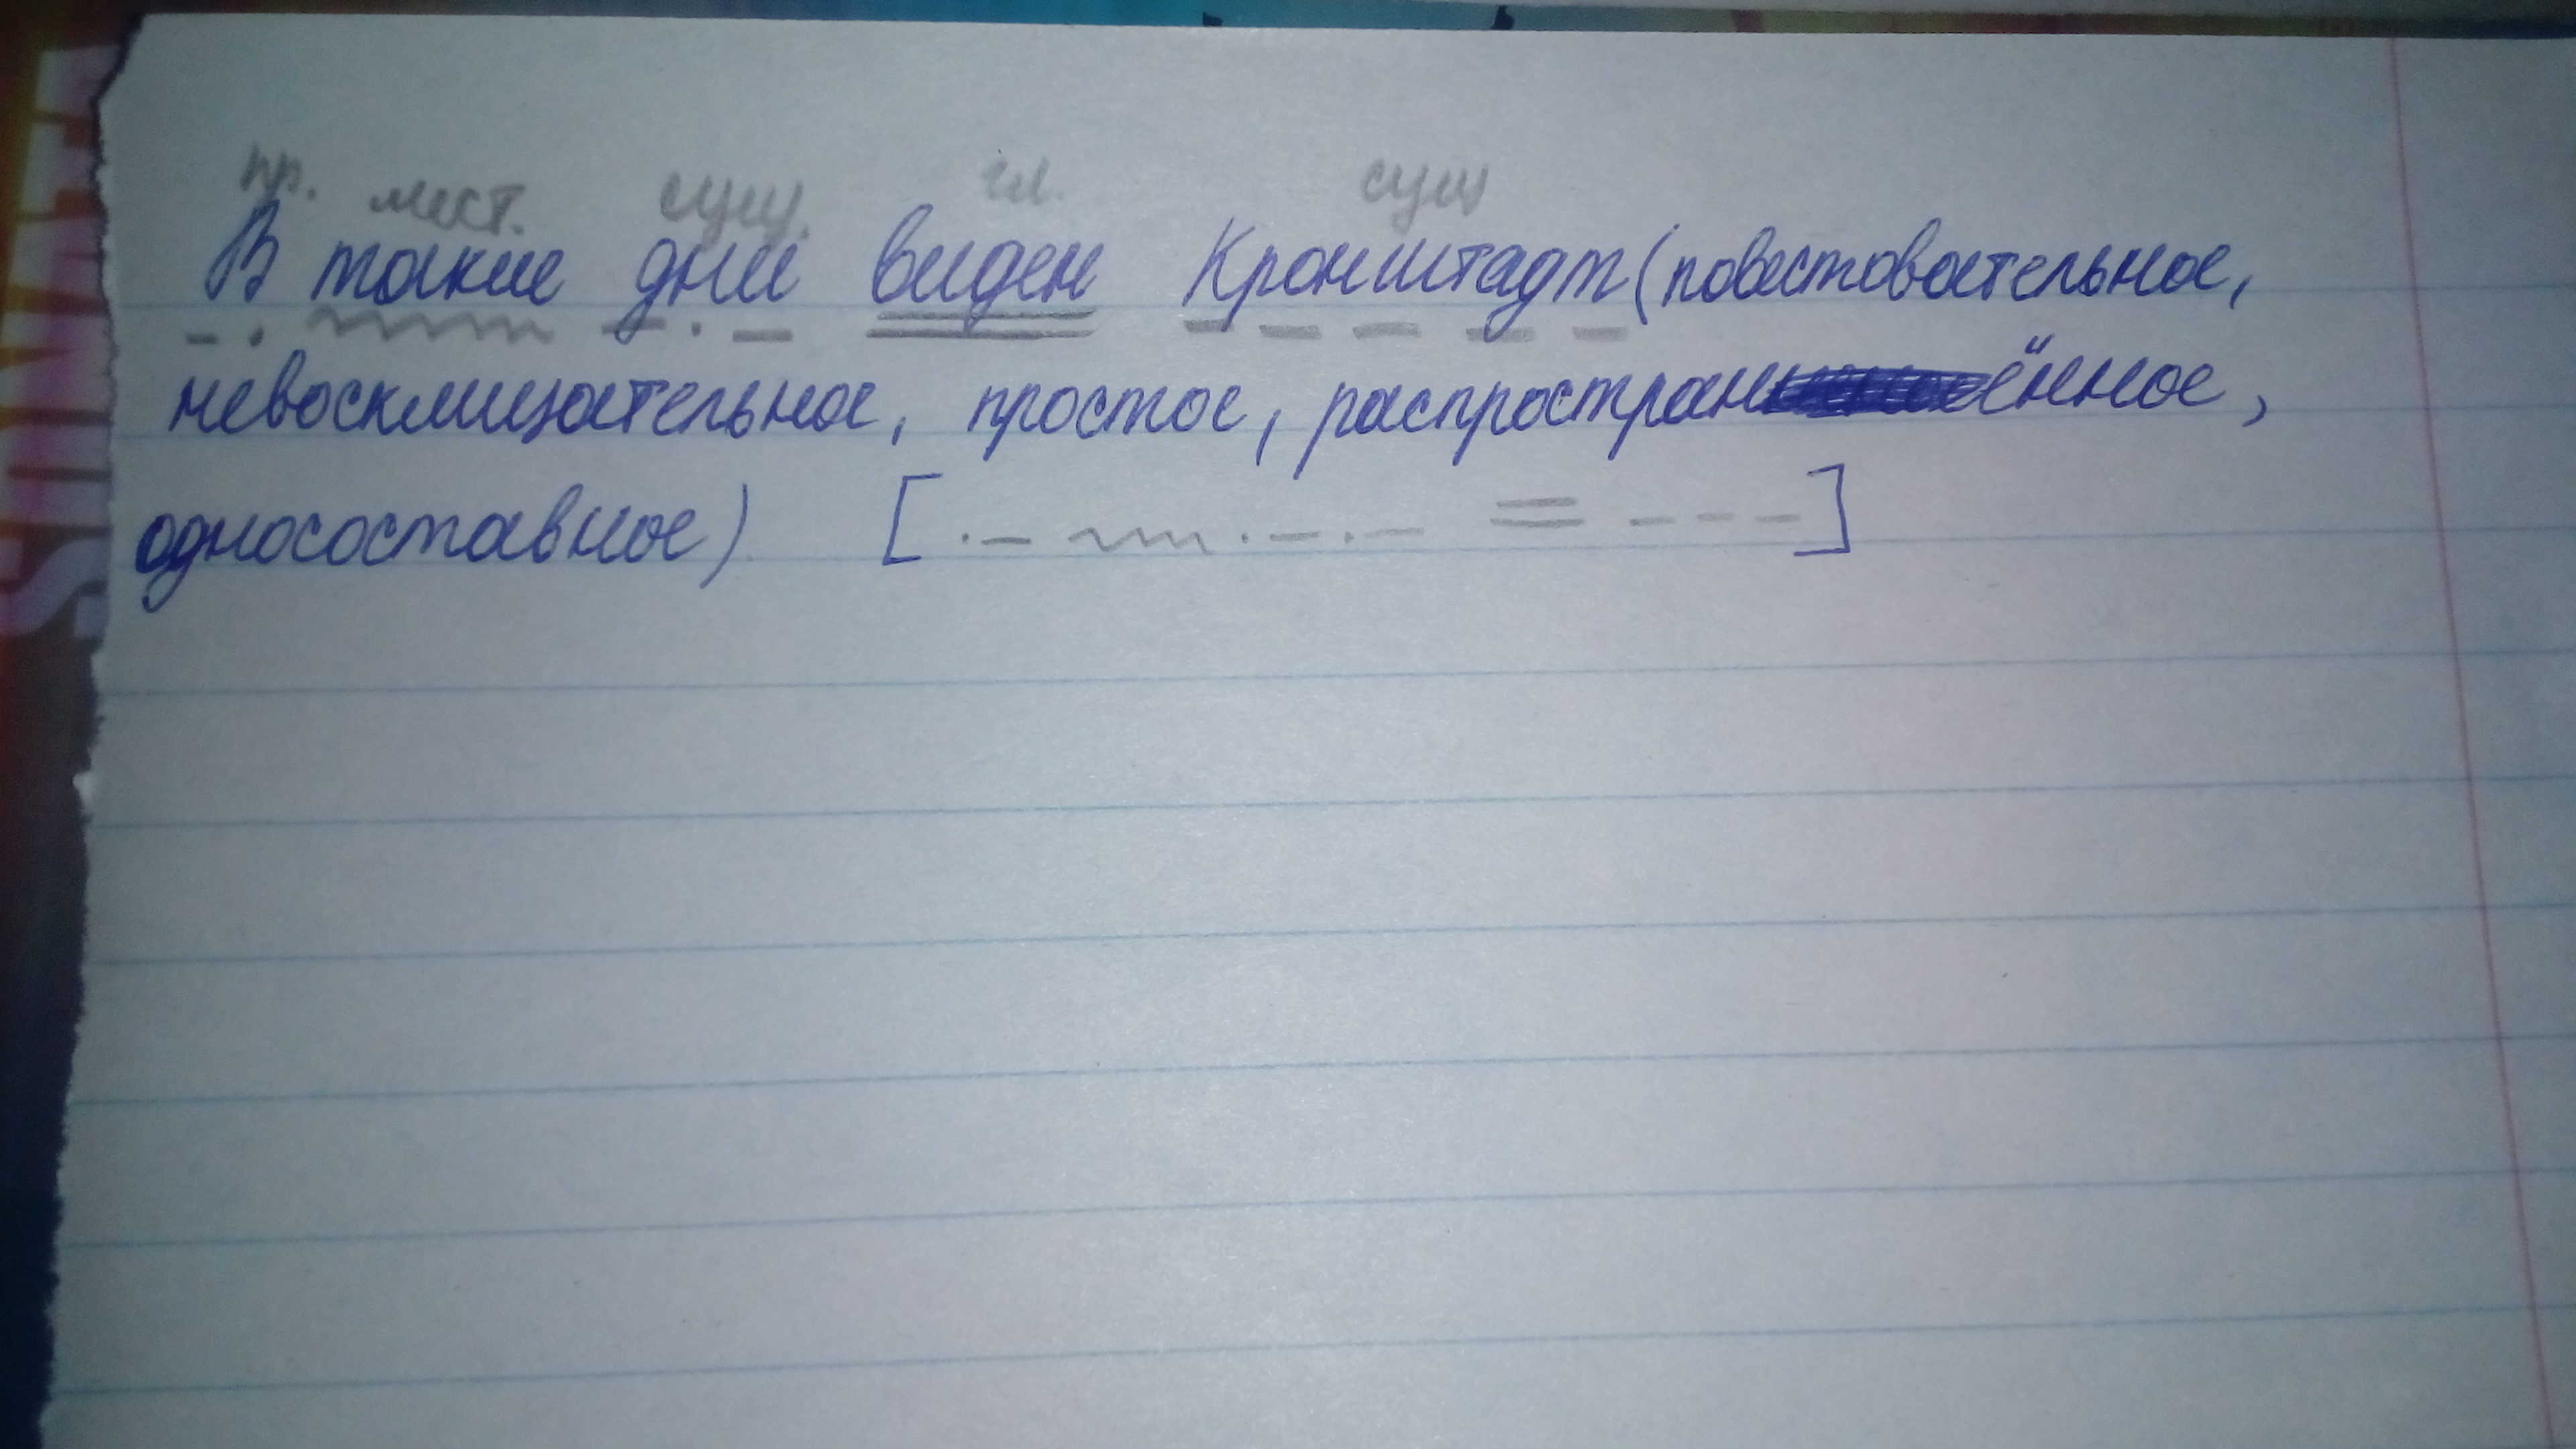 пр. мест. сущ. гл. сущ
В такие дни виден Кронштадт (повествовательное,
невосклицательное, простое, распространённое,
односоставное) [ ]